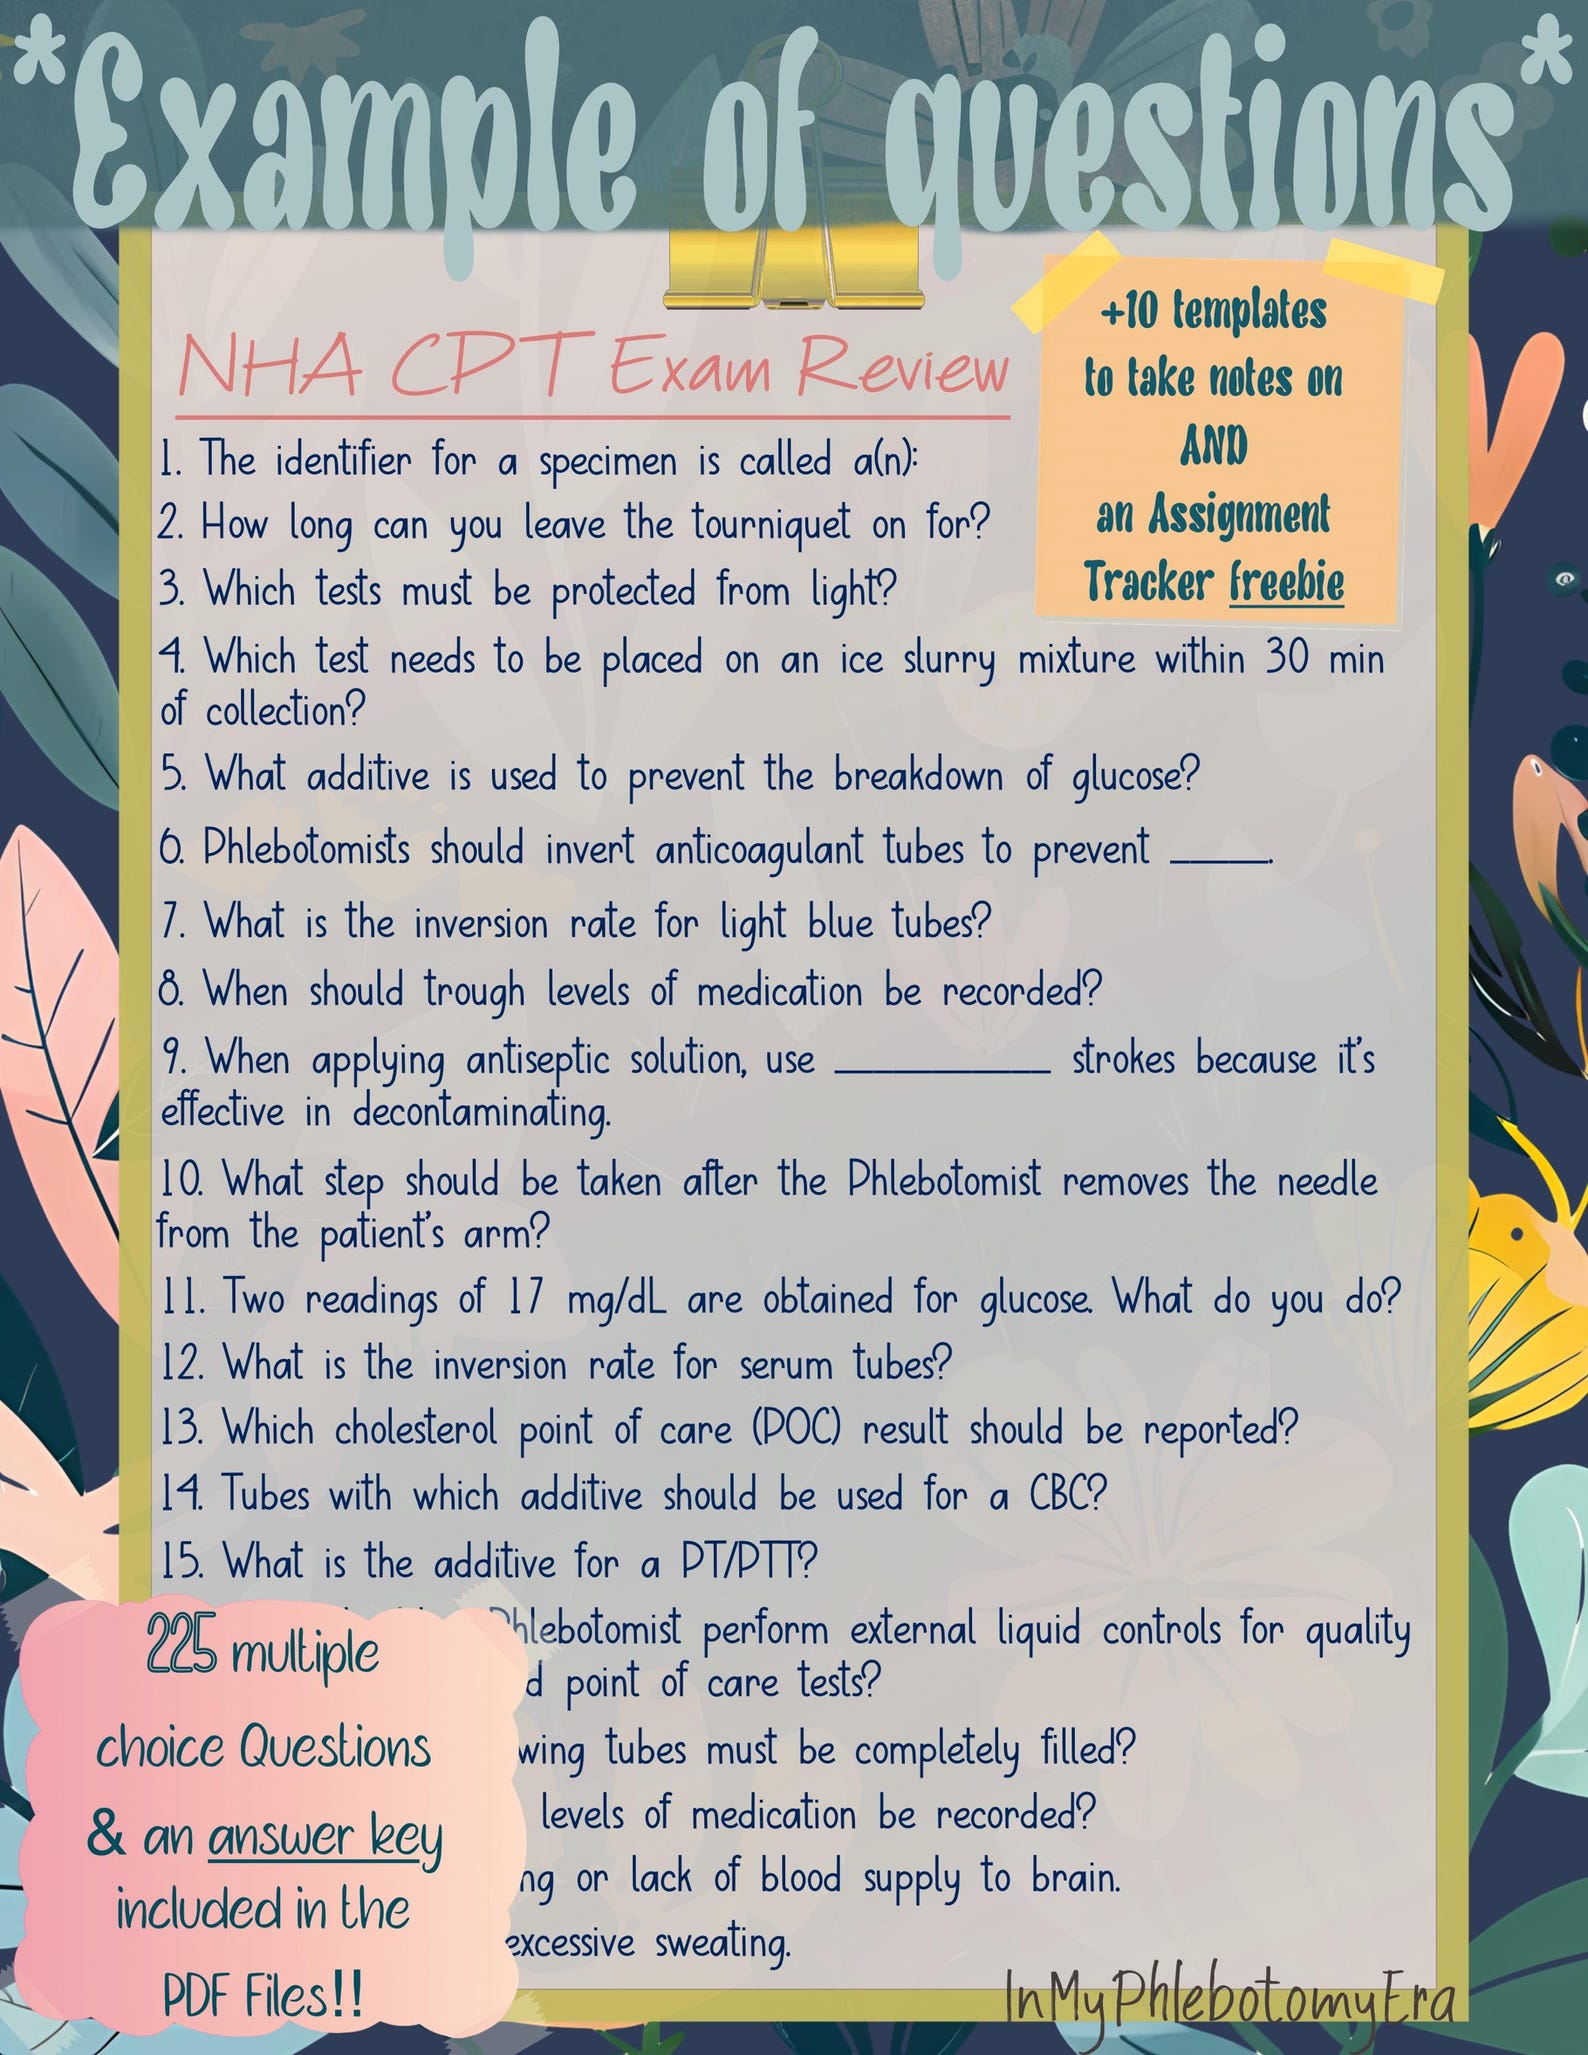 *Example of questions*
+10 templates
to take notes on
AND
an Assignment
Tracker freebie
NHA CPT Exam Review
1. The identifier for a specimen is called a(n):
2. How long can you leave the tourniquet on for?
3. Which tests must be protected from light?
4. Which test needs to be placed on an ice slurry mixture within 30 min
of collection?
5. What additive is used to prevent the breakdown of glucose?
6. Phlebotomists should invert anticoagulant tubes to prevent _____.
7. What is the inversion rate for light blue tubes?
8. When should trough levels of medication be recorded?
9. When applying antiseptic solution, use ___________ strokes because it's
effective in decontaminating.
10. What step should be taken after the Phlebotomist removes the needle
from the patient's arm?
11. Two readings of 17 mg/dL are obtained for glucose. What do you do?
12. What is the inversion rate for serum tubes?
13. Which cholesterol point of care (POC) result should be reported?
14. Tubes with which additive should be used for a CBC?
15. What is the additive for a PT/PTT?
Phlebotomist perform external liquid controls for quality
point of care tests?
tubes must be completely filled?
levels of medication be recorded?
or lack of blood supply to brain.
excessive sweating.
225 multiple
choice Questions
& an answer key
included in the
PDF Files!!
InMyPhlebotomyEra